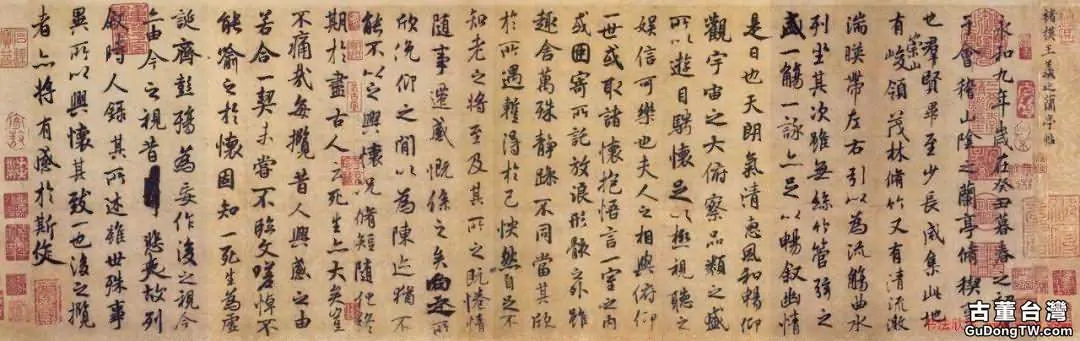 褚摸王羲之蘭亭帖
永和九年歲在癸丑暮春之初會
于會稽山陰之蘭亭脩稧事
也群賢畢至少長咸集此地
有崇山峻領茂林脩竹又有清流激
湍暎帶左右引以為流觴曲水
列坐其次雖無絲竹管弦之
盛一觴一詠亦足以暢敘幽情
是日也天朗氣清惠風和暢仰
觀宇宙之大俯察品類之盛
所以遊目騁懷足以極視聽之
娛信可樂也夫人之相與俯仰
一世或取諸懷抱悟言一室之內
或因寄所託放浪形骸之外雖
趣舍萬殊靜躁不同當其欣
於所遇暫得於己怏然自足不
知老之將至及其所之既惓情
隨事遷感慨係之矣向之所
欣俛仰之間以為陳迹猶不
能不以之興懷況脩短隨化終
期於盡古人云死生亦大矣豈
不痛哉每攬昔人興感之由
若合一契未嘗不臨文嗟悼不
能喻之於懷固知一死生為虛
誕齊彭殤為妄作後之視今
亦由今之視昔悲夫故列
敘時人錄其所述雖世殊事
異所以興懷其致一也後之攬
者亦將有感於斯文
古董台灣
GuDongTW.com